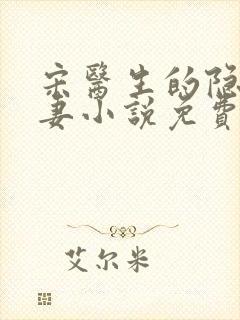 宋醫生的隐
妻小説免費
艾尔米